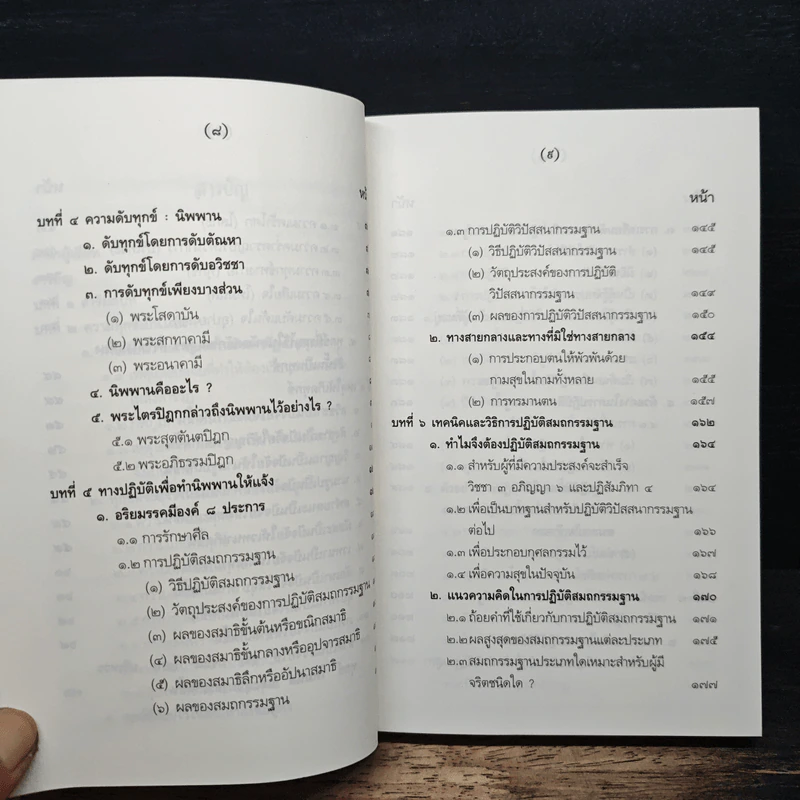 (๘)
บทที่ ๔ ความดับทุกข์ : นิพพาน
๑. ดับทุกข์โดยการดับตัณหา
๒. ดับทุกข์โดยการดับอวิชชา
๓. การดับทุกข์เพียงบางส่วน
(๑) พระโสดาบัน
(๒) พระสกทาคามี
(๓) พระอนาคามี
๔. นิพพานคืออะไร ?
๕. พระไตรปิฎกกล่าวถึงนิพพานไว้อย่างไร ?
๕.๑ พระสุตตันตปิฎก
๕.๒ พระอภิธรรมปิฎก
บทที่ ๕ ทางปฏิบัติเพื่อทำนิพพานให้แจ้ง
๑. อริยมรรคมีองค์ ๘ ประการ
๑.๑ การรักษาศีล
๑.๒ การปฏิบัติสมถกรรมฐาน
(๑) วิธีปฏิบัติสมถกรรมฐาน
(๒) วัตถุประสงค์ของการปฏิบัติสมถกรรมฐาน
(๓) ผลของสมาธิขั้นต้นหรือขณิกสมาธิ
(๔) ผลของสมาธิขั้นกลางหรืออุปจารสมาธิ
(๕) ผลของสมาธิลึกหรืออัปนาสมาธิ
(๖) ผลของสมถกรรมฐาน
(๙)
หน้า
๑.๓ การปฏิบัติวิปัสสนากรรมฐาน ๑๔๕
(๑) วิธีปฏิบัติวิปัสสนากรรมฐาน ๑๔๕
(๒) วัตถุประสงค์ของการปฏิบัติ
วิปัสสนากรรมฐาน ๑๔๙
(๓) ผลของการปฏิบัติวิปัสสนากรรมฐาน ๑๕๐
๒. ทางสายกลางและทางที่มิใช่ทางสายกลาง ๑๕๔
(๑) การประกอบตนให้พัวพันด้วย
กามสุขในกามทั้งหลาย ๑๕๕
(๒) การทรมานตน ๑๕๗
บทที่ ๖ เทคนิคและวิธีการปฏิบัติสมถกรรมฐาน ๑๖๒
๑. ทำไมจึงต้องปฏิบัติสมถกรรมฐาน ๑๖๔
๑.๑ สำหรับผู้ที่มีความประสงค์จะสำเร็จ
วิชชา ๓ อภิญญา ๖ และปฏิสัมภิทา ๔ ๑๖๔
๑.๒ เพื่อเป็นบาทฐานสำหรับปฏิบัติวิปัสสนากรรมฐาน
ต่อไป ๑๖๖
๑.๓ เพื่อประกอบกุศลกรรมไว้ ๑๖๗
๑.๔ เพื่อความสุขในปัจจุบัน ๑๖๘
๒. แนวความคิดในการปฏิบัติสมถกรรมฐาน ๑๗๐
๒.๑ ถ้อยคำที่ใช้เกี่ยวกับการปฏิบัติสมถกรรมฐาน ๑๗๑
๒.๒ ผลสูงสุดของสมถกรรมฐานแต่ละประเภท ๑๗๕
๒.๓ สมถกรรมฐานประเภทใดเหมาะสำหรับผู้มี
จริตชนิดใด ? ๑๗๗